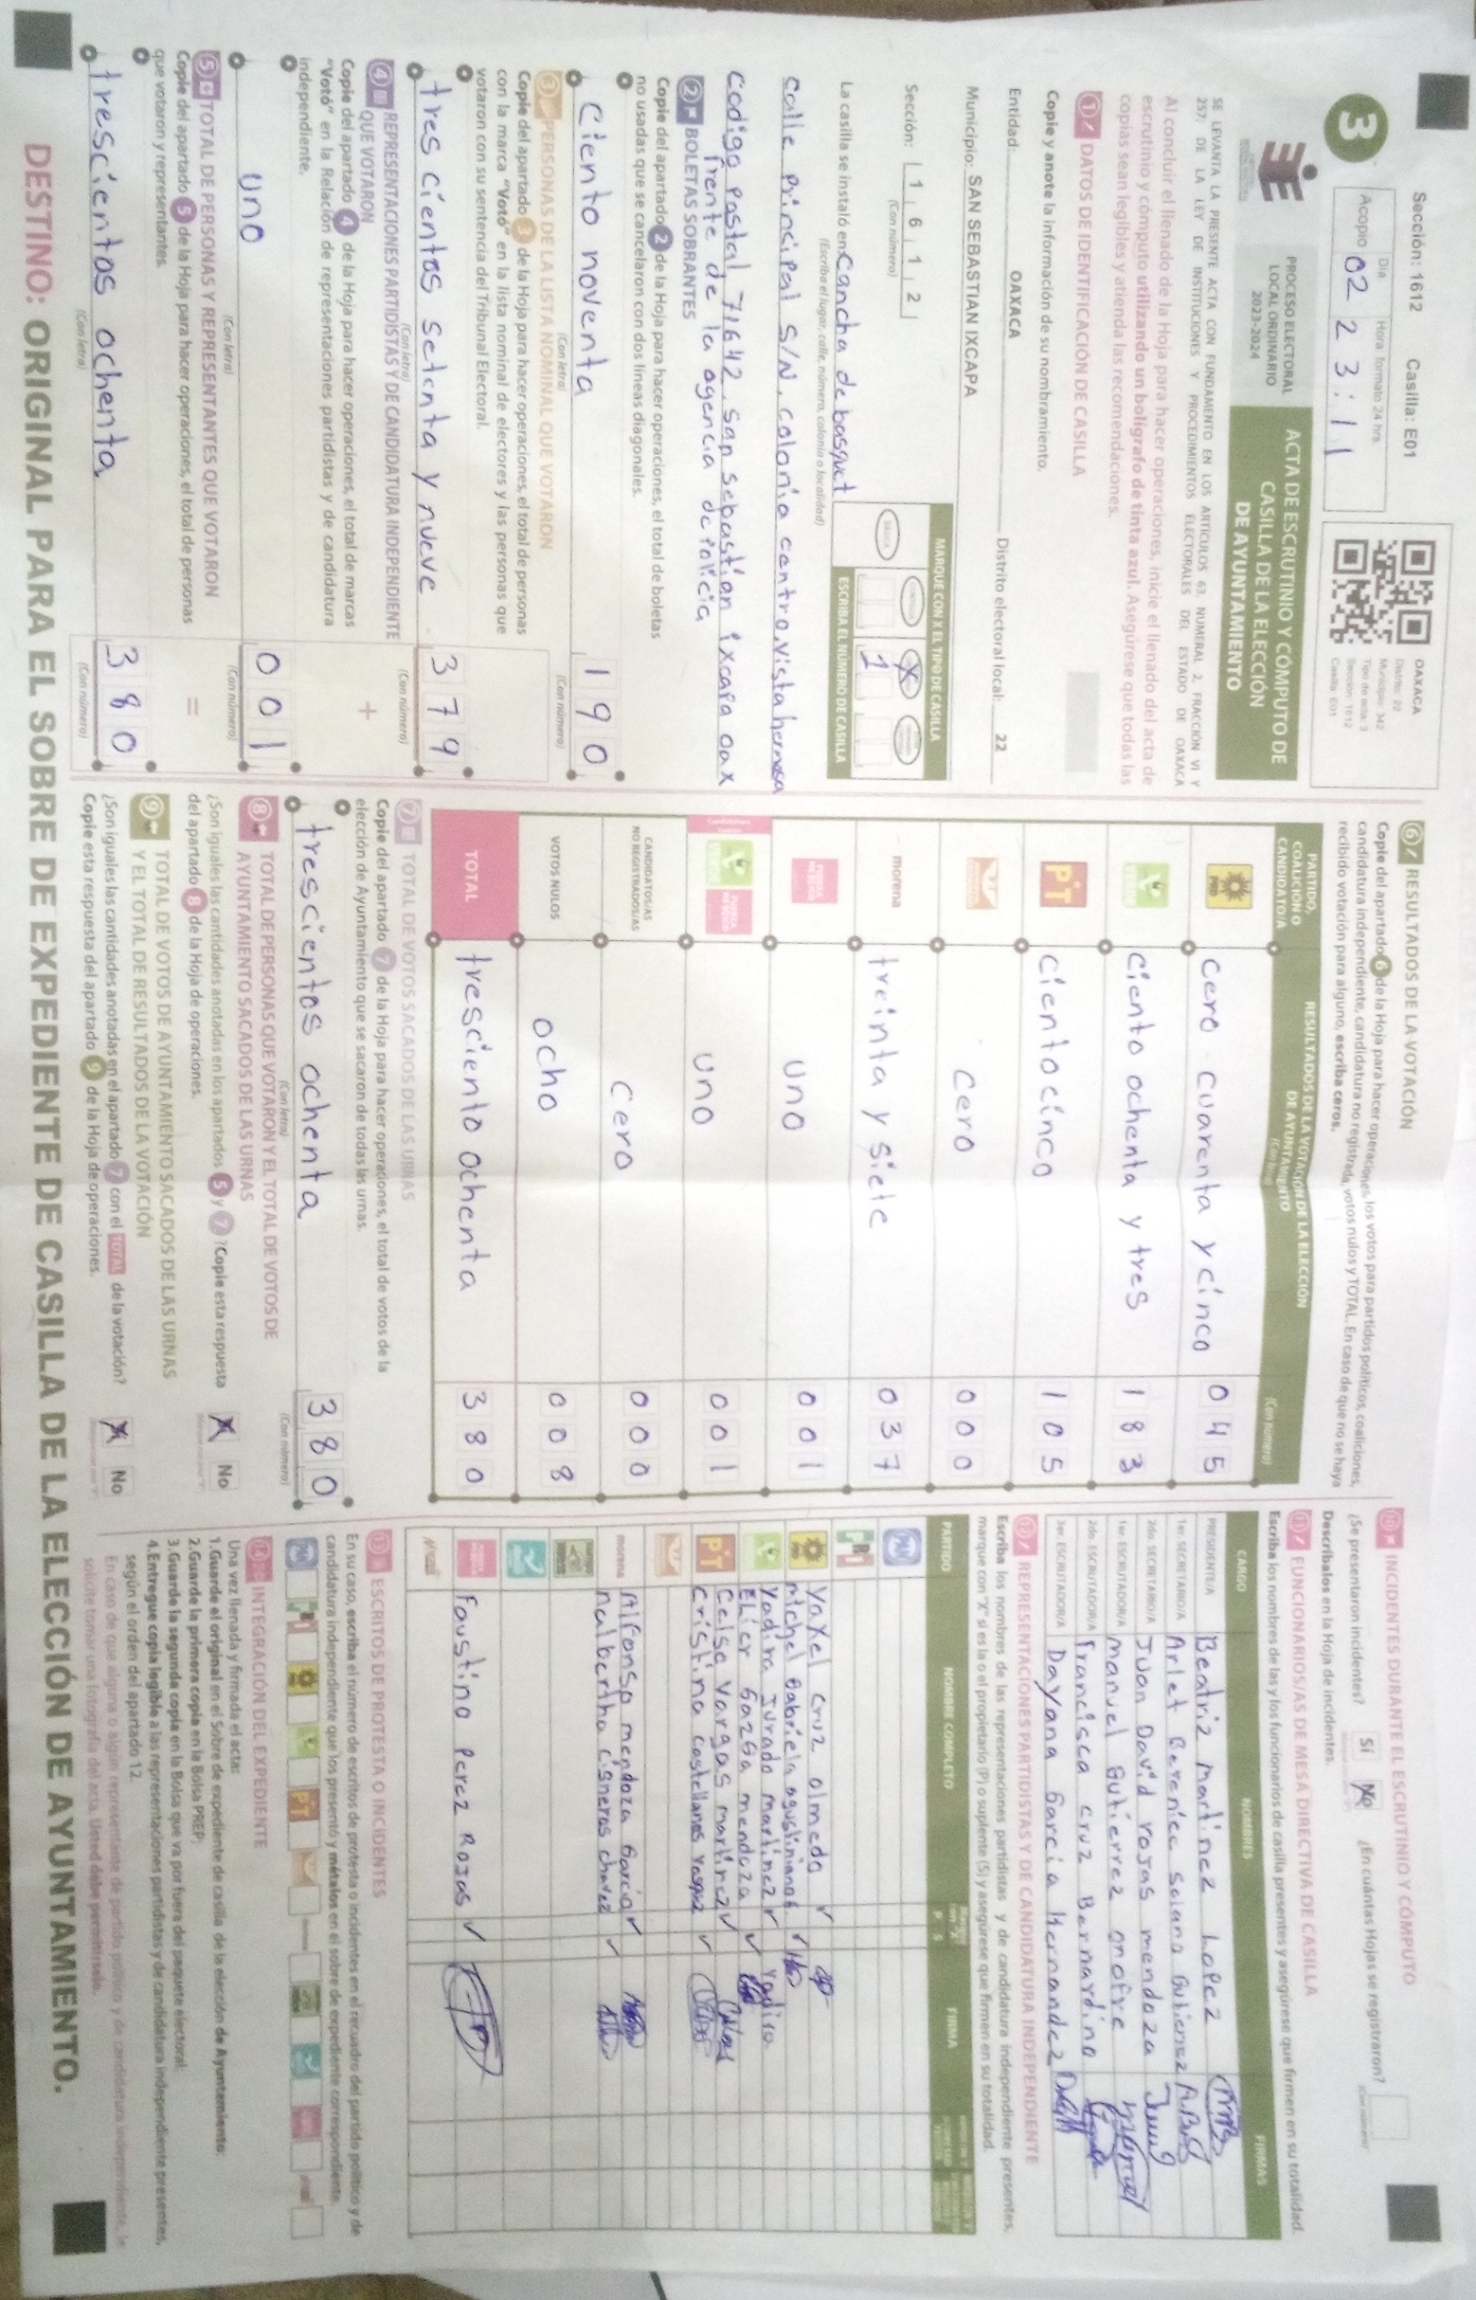 Sección: 1612 Casilla: E01
3
Día Hora formato 24 hrs.
Acopio 02 23:11
OAXACA
Distrito: 22
Municipio: 342
Tipo de acta: 3
Sección: 1612
Casilla: E01
PROCESO ELECTORAL
LOCAL ORDINARIO
2023-2024
ACTA DE ESCRUTINIO Y CÓMPUTO DE
CASILLA DE LA ELECCIÓN
DE AYUNTAMIENTO
SE LEVANTA LA PRESENTE ACTA CON FUNDAMENTO EN LOS ARTÍCULOS 63, NUMERAL 2, FRACCIÓN VI Y
257, DE LA LEY DE INSTITUCIONES Y PROCEDIMIENTOS ELECTORALES DEL ESTADO DE OAXACA
Al concluir el llenado de la Hoja para hacer operaciones, inicie el llenado del acta de
escrutinio y cómputo utilizando un bolígrafo de tinta azul. Asegúrese que todas las
copias sean legibles y atienda las recomendaciones.
1 DATOS DE IDENTIFICACIÓN DE CASILLA
Copie y anote la información de su nombramiento.
Entidad: OAXACA Distrito electoral local: 22
Municipio: SAN SEBASTIAN IXCAPA
Sección: 1 6 1 2
(Con número)
MARQUE CON X EL TIPO DE CASILLA
X
1
ESCRIBA EL NÚMERO DE CASILLA
La casilla se instaló en: Cancha de basquet
(Escriba el lugar, calle, número, colonia o localidad)
calle principal S/N, colonia centro, vista hermosa
codigo postal 71642, san sebastian ixcapa oax
frente de la agencia de policia
2 BOLETAS SOBRANTES
Copie del apartado 2 de la Hoja para hacer operaciones, el total de boletas
no usadas que se cancelaron con dos líneas diagonales.
ciento noventa 190
(Con letra) (Con número)
3 PERSONAS DE LA LISTA NOMINAL QUE VOTARON
Copie del apartado 3 de la Hoja para hacer operaciones, el total de personas
con la marca "Votó" en la lista nominal de electores y las personas que
votaron con su sentencia del Tribunal Electoral.
tres cientos setenta y nueve 379
(Con letra) (Con número)
4 REPRESENTACIONES PARTIDISTAS Y DE CANDIDATURA INDEPENDIENTE
QUE VOTARON
+
Copie del apartado 4 de la Hoja para hacer operaciones, el total de marcas
"Votó" en la Relación de representaciones partidistas y de candidatura
independiente.
uno 001
(Con letra) (Con número)
5 TOTAL DE PERSONAS Y REPRESENTANTES QUE VOTARON
=
Copie del apartado 5 de la Hoja para hacer operaciones, el total de personas
que votaron y representantes.
trescientos ochenta 380
(Con letra) (Con número)
6 RESULTADOS DE LA VOTACIÓN
Copie del apartado 6 de la Hoja para hacer operaciones, los votos para partidos políticos, coaliciones,
candidatura independiente, candidatura no registrada, votos nulos y TOTAL. En caso de que no se haya
recibido votación para alguno, escriba ceros.
PARTIDO,
COALICIÓN O
CANDIDATO/A
RESULTADOS DE LA VOTACIÓN DE LA ELECCIÓN
DE AYUNTAMIENTO
(Con letra) (Con número)
PRD cero cuarenta y cinco 045
VERDE ciento ochenta y tres 183
PT ciento cinco 105
cero 000
morena treinta y siete 037
uno 001
uno 001
CANDIDATOS/AS
NO REGISTRADOS/AS cero 000
VOTOS NULOS ocho 008
TOTAL tresciento ochenta 380
7 TOTAL DE VOTOS SACADOS DE LAS URNAS
Copie del apartado 7 de la Hoja para hacer operaciones, el total de votos de la
elección de Ayuntamiento que se sacaron de todas las urnas.
trescientos ochenta 380
(Con letra) (Con número)
8 TOTAL DE PERSONAS QUE VOTARON Y EL TOTAL DE VOTOS DE
AYUNTAMIENTO SACADOS DE LAS URNAS
¿Son iguales las cantidades anotadas en los apartados 5 y 7 ? Copie esta respuesta
del apartado 8 de la Hoja de operaciones.
X No
9 TOTAL DE VOTOS DE AYUNTAMIENTO SACADOS DE LAS URNAS
Y EL TOTAL DE RESULTADOS DE LA VOTACIÓN
¿Son iguales las cantidades anotadas en el apartado 7 con el TOTAL de la votación?
Copie esta respuesta del apartado 9 de la Hoja de operaciones.
X No
10 INCIDENTES DURANTE EL ESCRUTINIO Y CÓMPUTO
¿Se presentaron incidentes? Sí No ¿En cuántas Hojas se registraron?
Descríbalos en la Hoja de incidentes.
11 FUNCIONARIOS/AS DE MESA DIRECTIVA DE CASILLA
Escriba los nombres de las y los funcionarios de casilla presentes y asegúrese que firmen en su totalidad.
CARGO NOMBRES FIRMAS
PRESIDENTE/A Beatriz martinez Lopez
1er. SECRETARIO/A Arlet Berenice Solano Gutierrez
2do. SECRETARIO/A Juan David rojas mendoza
1er. ESCRUTADOR/A manuel Gutierrez onofre manuel
2do. ESCRUTADOR/A francisca cruz Bernardino
3er. ESCRUTADOR/A Dayana Garcia Hernandez
12 REPRESENTACIONES PARTIDISTAS Y DE CANDIDATURA INDEPENDIENTE
Escriba los nombres de las representaciones partidistas y de candidatura independiente presentes,
marque con "X" si es la o el propietario (P) o suplente (S) y asegúrese que firmen en su totalidad.
PARTIDO NOMBRE COMPLETO P S FIRMA
PAN
PRI
Yaxel cruz olmedo
michel Gabriela
Yadira Jurado martinez Yadira
Elier Gazga mendoza
PT Celso Vargas martinez
Cristina castellanos vasquez
morena Alfonso mendoza Garcia
nalbertha cisneros chavez
Faustino Perez Rojas
13 ESCRITOS DE PROTESTA O INCIDENTES
En su caso, escriba el número de escritos de protesta o incidentes en el recuadro del partido político y de
candidatura independiente que los presentó y métalos en el sobre de expediente correspondiente.
14 INTEGRACIÓN DEL EXPEDIENTE
Una vez llenada y firmada el acta:
1. Guarde el original en el Sobre de expediente de casilla de la elección de Ayuntamiento;
2. Guarde la primera copia en la Bolsa PREP;
3. Guarde la segunda copia en la Bolsa que va por fuera del paquete electoral;
4. Entregue copia legible a las representaciones partidistas y de candidatura independiente presentes,
según el orden del apartado 12.
DESTINO: ORIGINAL PARA EL SOBRE DE EXPEDIENTE DE CASILLA DE LA ELECCIÓN DE AYUNTAMIENTO.